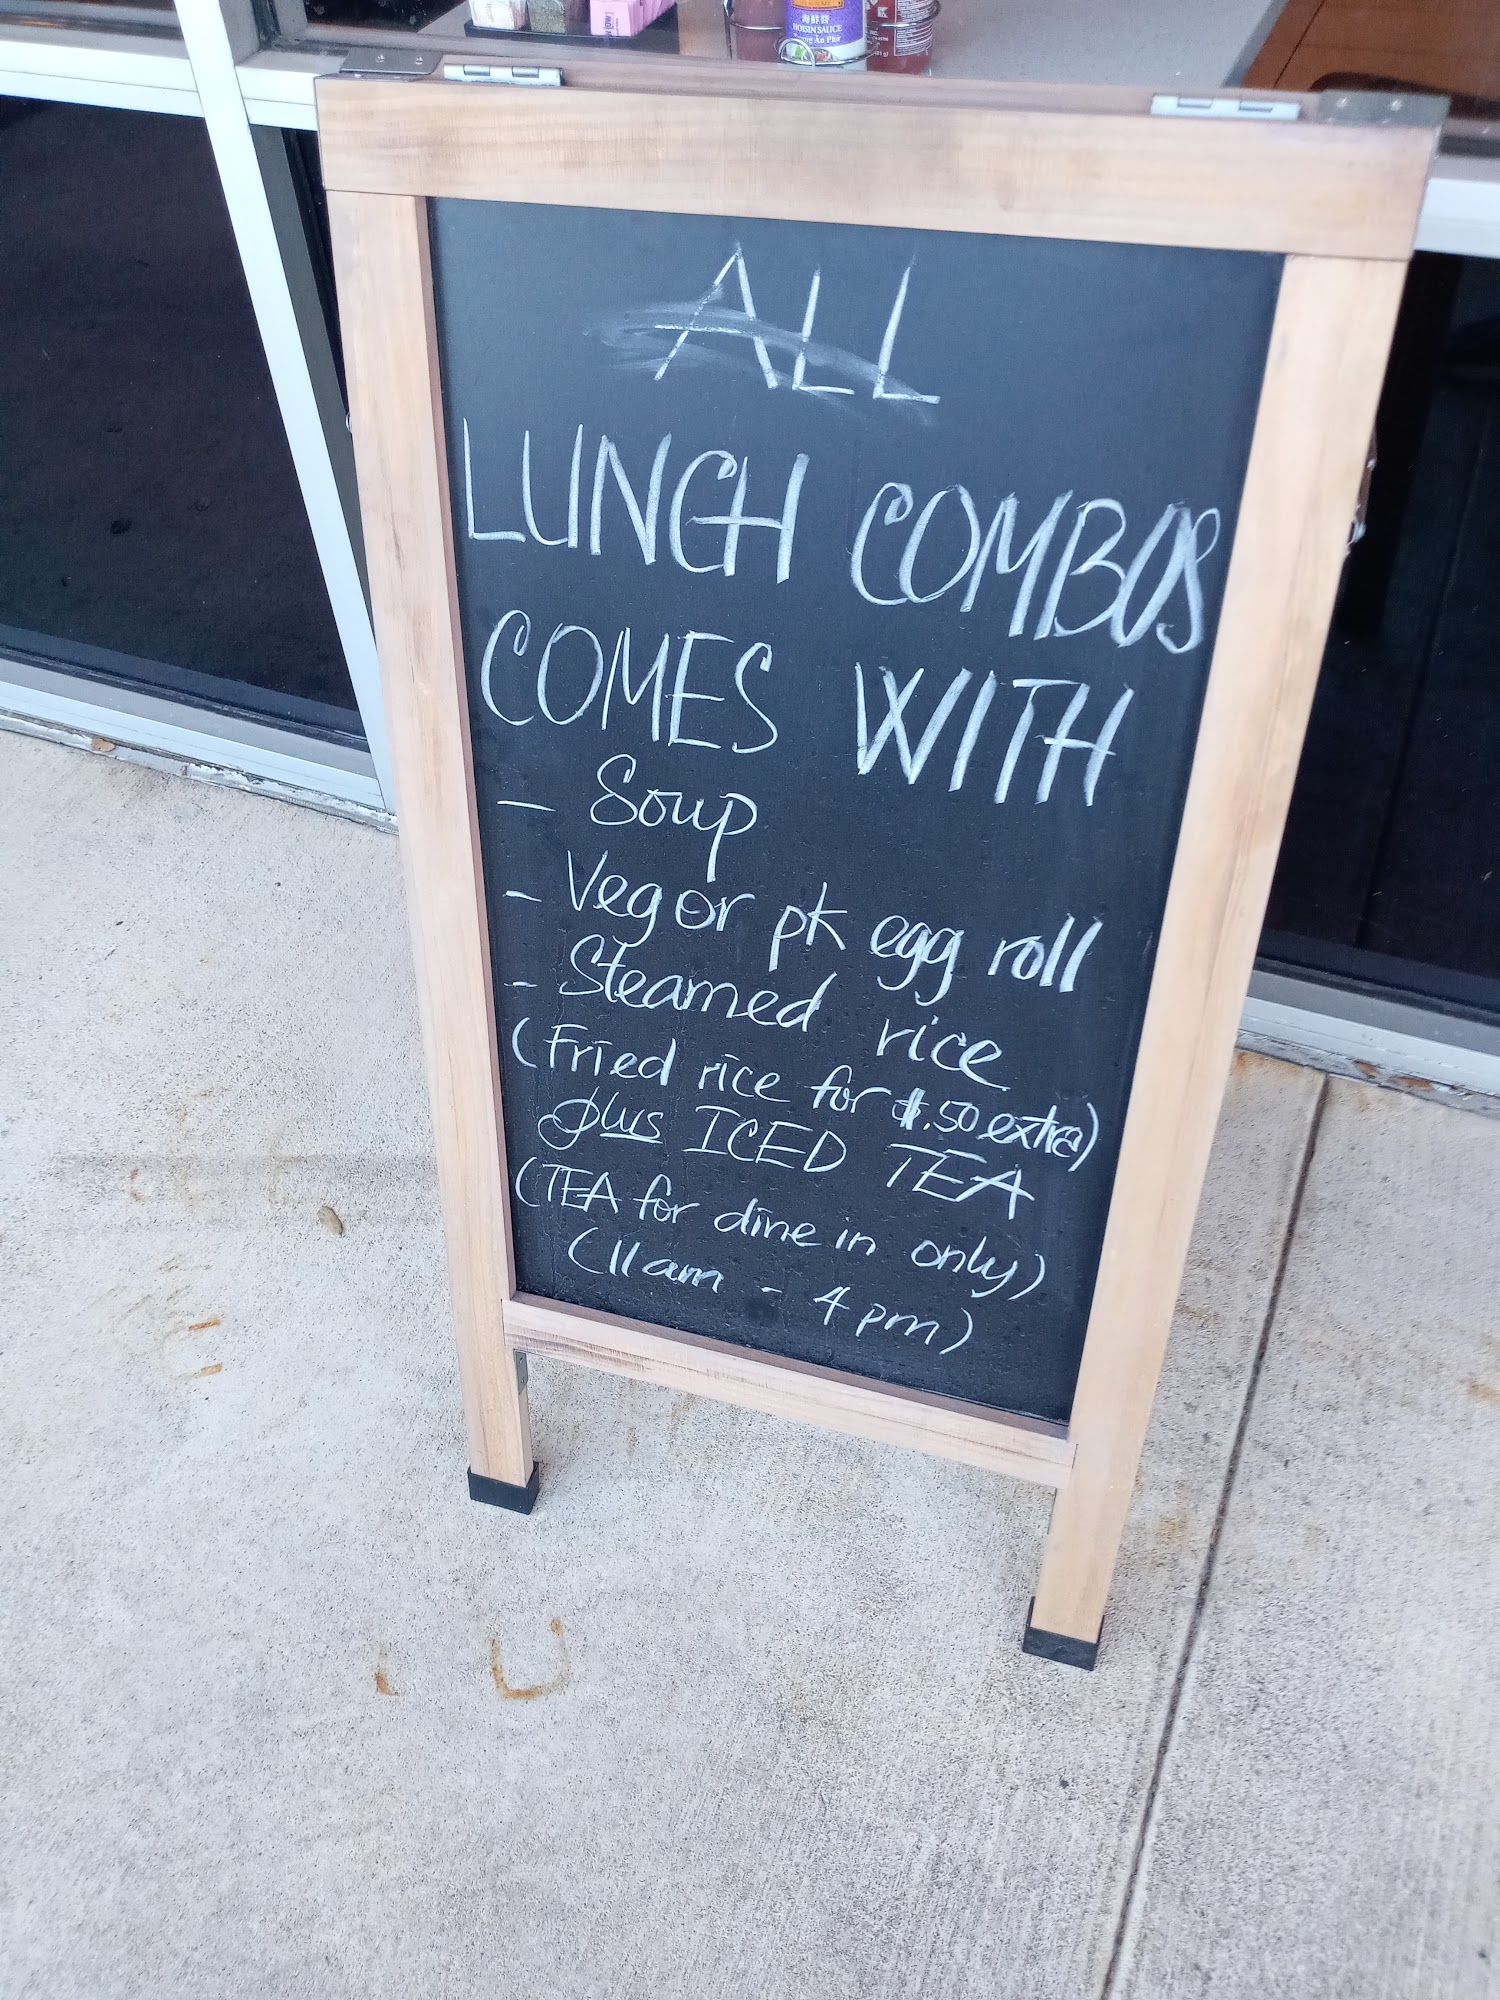 海鮮醬
HOISIN SAUCE
ALL
LUNCH COMBOS
COMES WITH
- Soup
- Veg or pk egg roll
- Steamed rice
(Fried rice for $.50 extra)
plus ICED TEA
(TEA for dine in only)
(11 am - 4 pm)